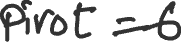 Pivot = 6